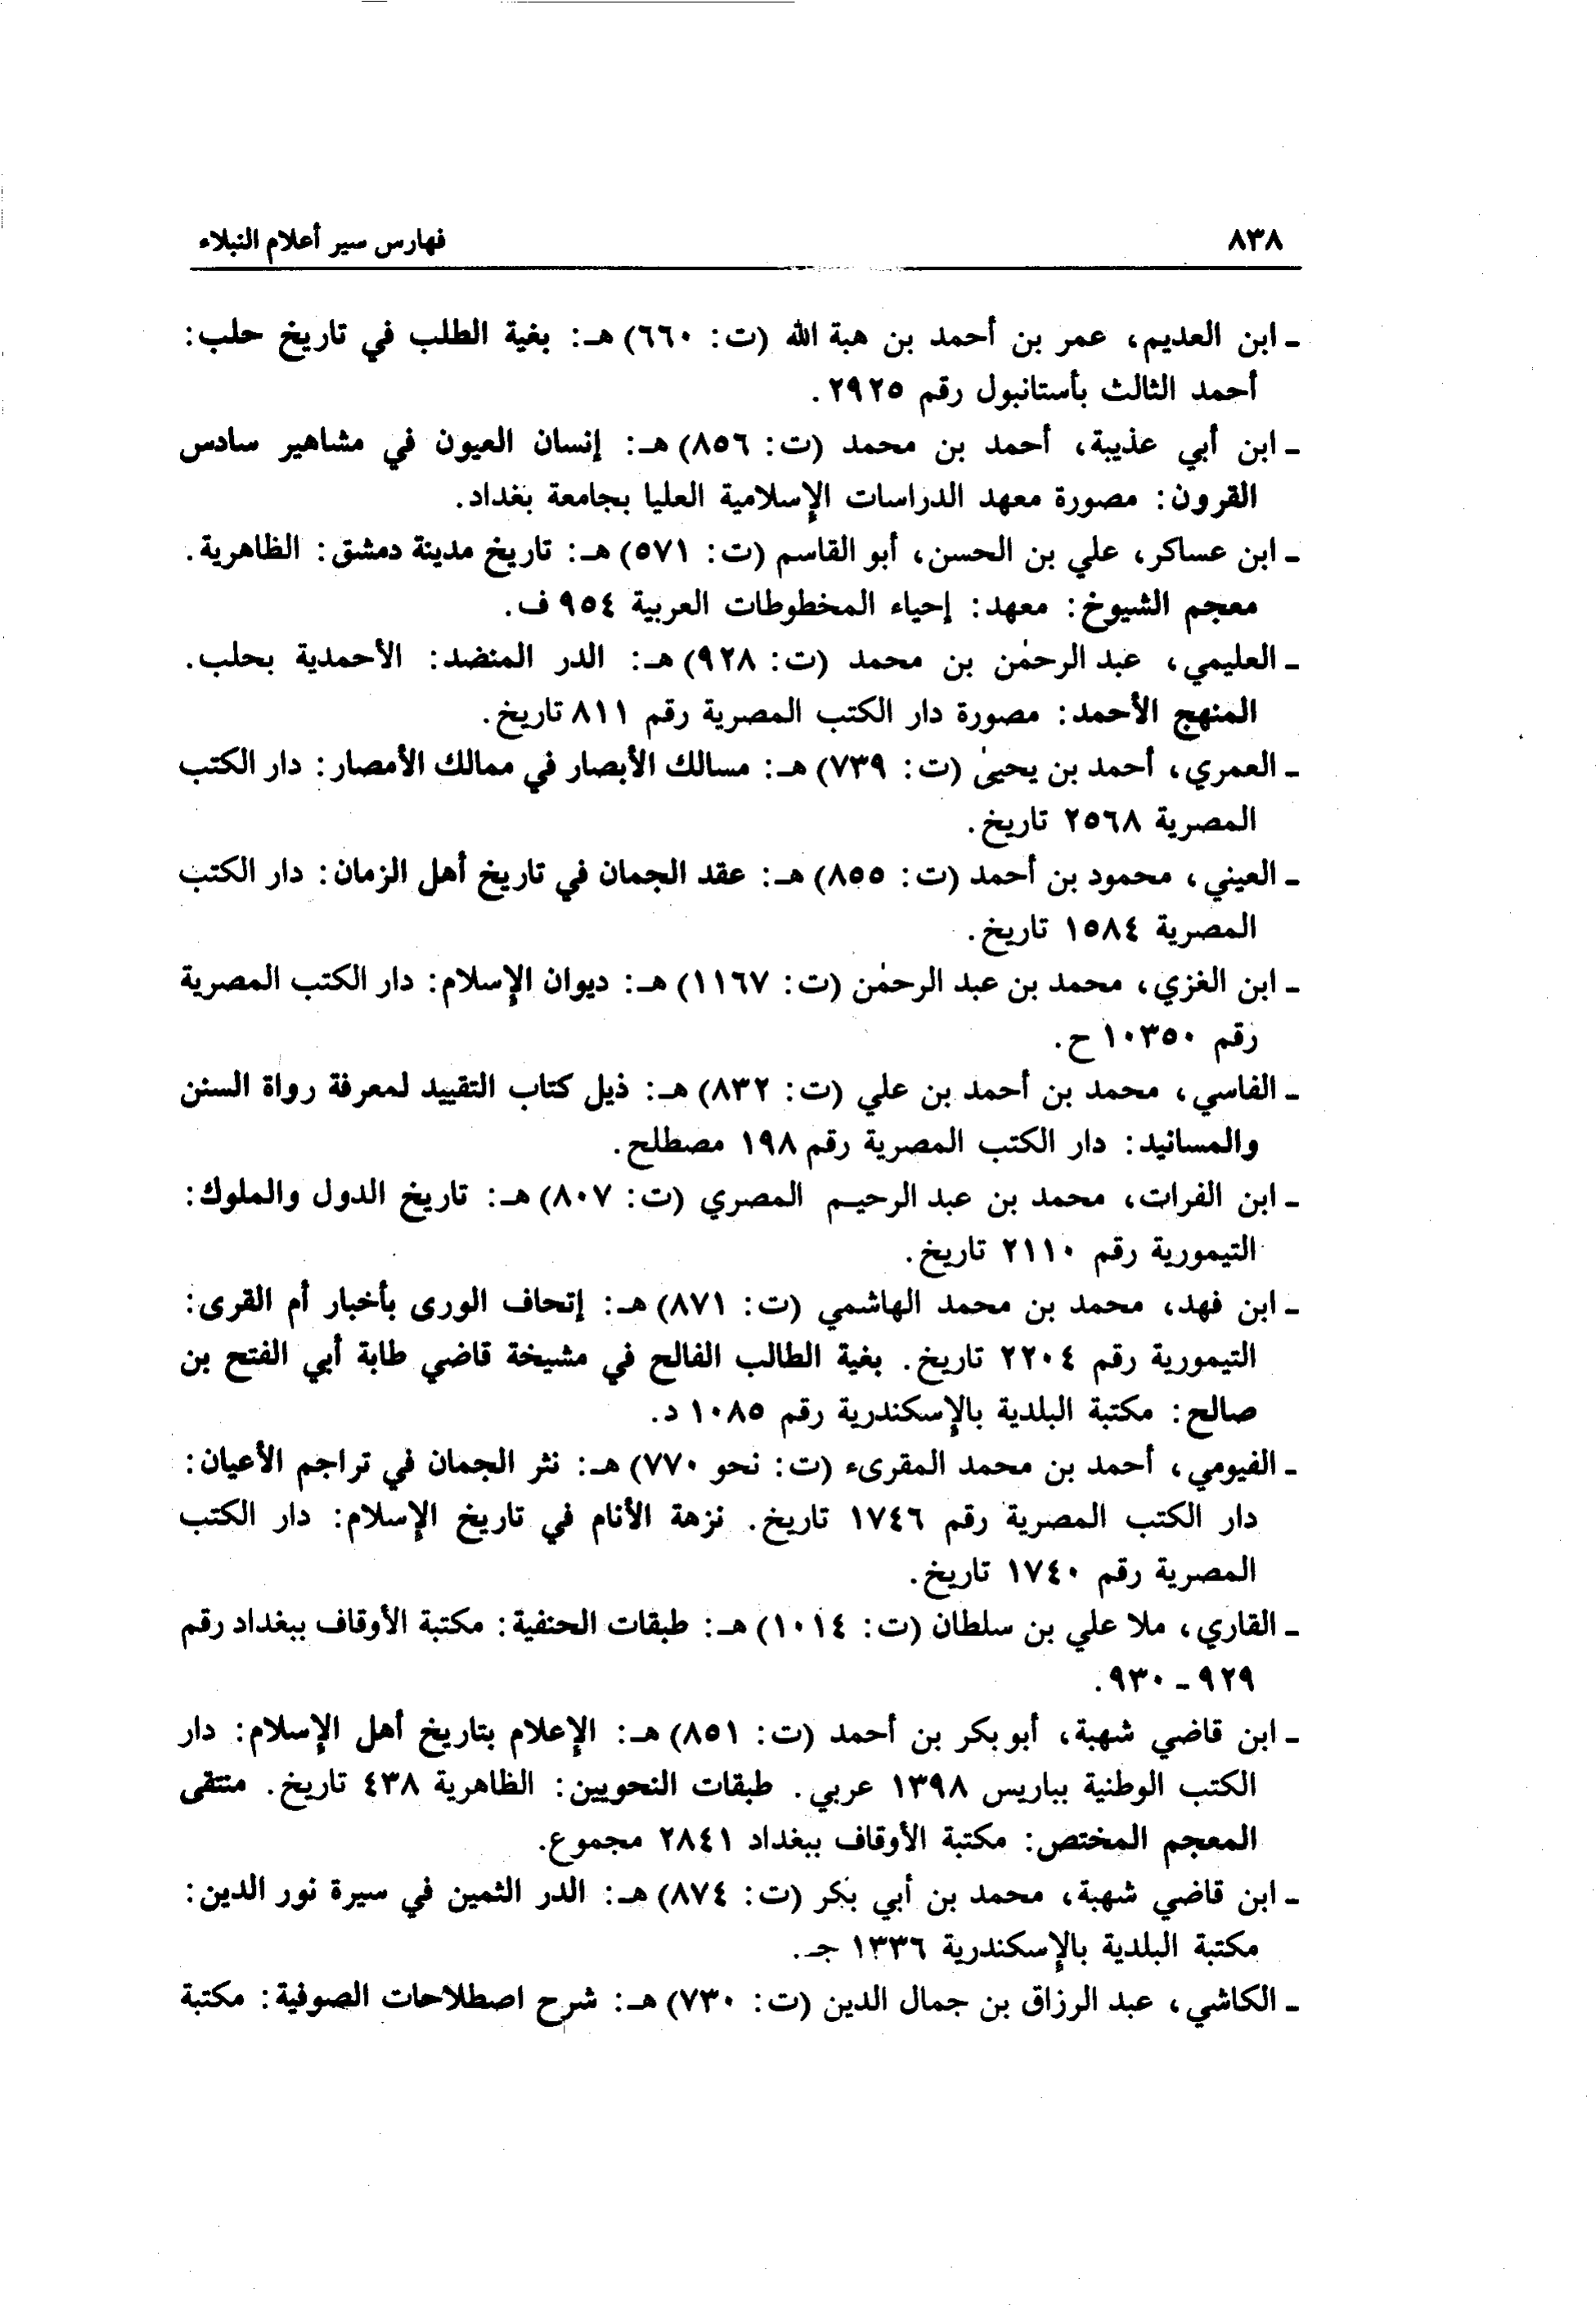 ٨٣٨ فهارس سير أعلام النبلاء
ـ ابن العديم، عمر بن أحمد بن هبة الله (ت: ٦٦٠) هـ: بغية الطلب في تاريخ حلب:
أحمد الثالث بأستانبول رقم ٢٩٢٥.
ـ ابن أبي عذيبة، أحمد بن محمد (ت: ٨٥٦) هـ: إنسان العيون في مشاهير سادس
القرون: مصورة معهد الدراسات الإسلامية العليا بجامعة بغداد.
ـ ابن عساكر، علي بن الحسن، أبو القاسم (ت: ٥٧١) هـ: تاريخ مدينة دمشق: الظاهرية.
معجم الشيوخ: معهد: إحياء المخطوطات العربية ٩٥٤ ف.
ـ العليمي، عبد الرحمٰن بن محمد (ت: ٩٢٨) هـ: الدر المنضد: الأحمدية بحلب.
المنهج الأحمد: مصورة دار الكتب المصرية رقم ٨١١ تاريخ.
ـ العمري، أحمد بن يحيىٰ (ت: ٧٣٩) هـ: مسالك الأبصار في ممالك الأمصار: دار الكتب
المصرية ٢٥٦٨ تاريخ.
ـ العيني، محمود بن أحمد (ت: ٨٥٥) هـ: عقد الجمان في تاريخ أهل الزمان: دار الكتب
المصرية ١٥٨٤ تاريخ.
ـ ابن الغزي، محمد بن عبد الرحمٰن (ت: ١١٦٧) هـ: ديوان الإسلام: دار الكتب المصرية
رقم ١٠٣٥٠ ح.
ـ الفاسي، محمد بن أحمد بن علي (ت: ٨٣٢) هـ: ذيل كتاب التقييد لمعرفة رواة السنن
والمسانيد: دار الكتب المصرية رقم ١٩٨ مصطلح.
ـ ابن الفرات، محمد بن عبد الرحيم المصري (ت: ٨٠٧) هـ: تاريخ الدول والملوك:
التيمورية رقم ٢١١٠ تاريخ.
ـ ابن فهد، محمد بن محمد الهاشمي (ت: ٨٧١) هـ: إتحاف الورى بأخبار أم القرى:
التيمورية رقم ٢٢٠٤ تاريخ. بغية الطالب الفالح في مشيخة قاضي طابة أبي الفتح بن
صالح: مكتبة البلدية بالإسكندرية رقم ١٠٨٥ د.
ـ الفيومي، أحمد بن محمد المقرىء (ت: نحو ٧٧٠) هـ: نثر الجمان في تراجم الأعيان:
دار الكتب المصرية رقم ١٧٤٦ تاريخ. نزهة الأنام في تاريخ الإسلام: دار الكتب
المصرية رقم ١٧٤٠ تاريخ.
ـ القاري، ملا علي بن سلطان (ت: ١٠١٤) هـ: طبقات الحنفية: مكتبة الأوقاف ببغداد رقم
٩٢٩ ـ ٩٣٠.
ـ ابن قاضي شهبة، أبو بكر بن أحمد (ت: ٨٥١) هـ: الإعلام بتاريخ أهل الإسلام: دار
الكتب الوطنية بباريس ١٣٩٨ عربي. طبقات النحويين: الظاهرية ٤٣٨ تاريخ. منتقى
المعجم المختص: مكتبة الأوقاف ببغداد ٢٨٤١ مجموع.
ـ ابن قاضي شهبة، محمد بن أبي بكر (ت: ٨٧٤) هـ: الدر الثمين في سيرة نور الدين:
مكتبة البلدية بالإسكندرية ١٣٣٦ جـ.
ـ الكاشي، عبد الرزاق بن جمال الدين (ت: ٧٣٠) هـ: شرح اصطلاحات الصوفية: مكتبة